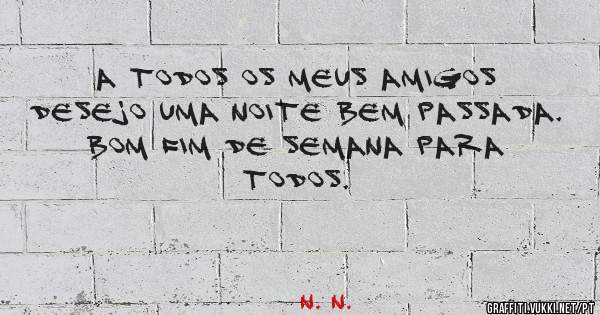 A TODOS OS MEUS AMIGOS
DESEJO UMA NOITE BEM PASSADA.
BOM FIM DE SEMANA PARA
TODOS.
N. N.
GRAFFITI.VUKKI.NET/PT